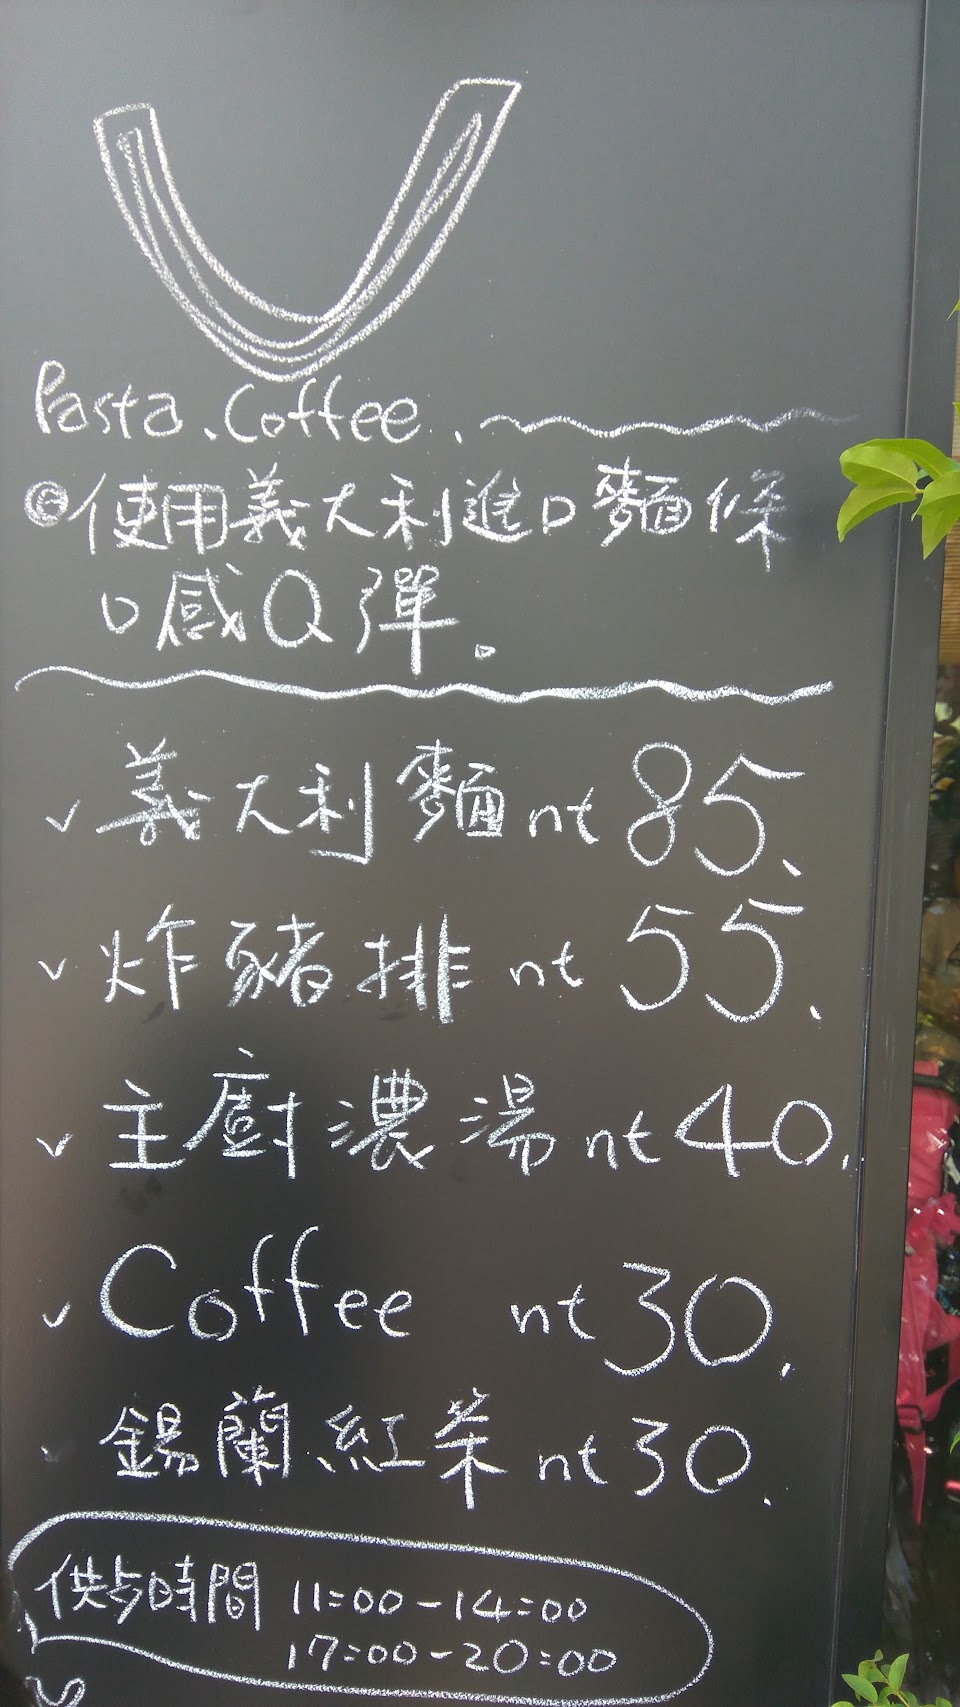 Pasta.Coffee.
◎使用義大利進口麵條
口感Q彈。
✓義大利麵nt 85.
✓炸豬排nt 55.
✓主廚濃湯nt 40.
✓Coffee nt 30.
✓錫蘭紅茶nt 30.
供歺時間 11:00-14:00
17:00-20:00